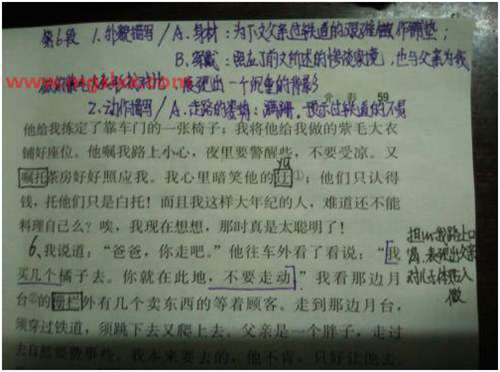 第6段 1.外貌描写/A.身材:为下文父亲过铁道的艰难做作铺垫;
B.穿戴:照应了前文所述的惨淡家境,也与父亲为我
表现出一个沉重的背影
2.动作描写/A.走路的姿势:蹒跚,显示过铁道的不易
背影 59
他给我拣定了靠车门的一张椅子;我将他给我做的紫毛大衣
铺好座位。他嘱我路上小心,夜里要警醒些,不要受凉。又
嘱托茶房好好照应我。我心里暗笑他的迂①;他们只认得
钱,托他们只是白托!而且我这样大年纪的人,难道还不能
料理自己么?唉,我现在想想,那时真是太聪明了!
6、我说道:“爸爸,你走吧。”他往车外看了看说:“我
买几个橘子去。你就在此地,不要走动。”我看那边月
台②的栅栏外有几个卖东西的等着顾客。走到那边月台,
须穿过铁道,须跳下去又爬上去。父亲是一个胖子,走过
去自然要费事些。我本来要去的,他不肯,只好让他去。
担心我路上口
渴,表现出父亲
对儿子体贴入
微